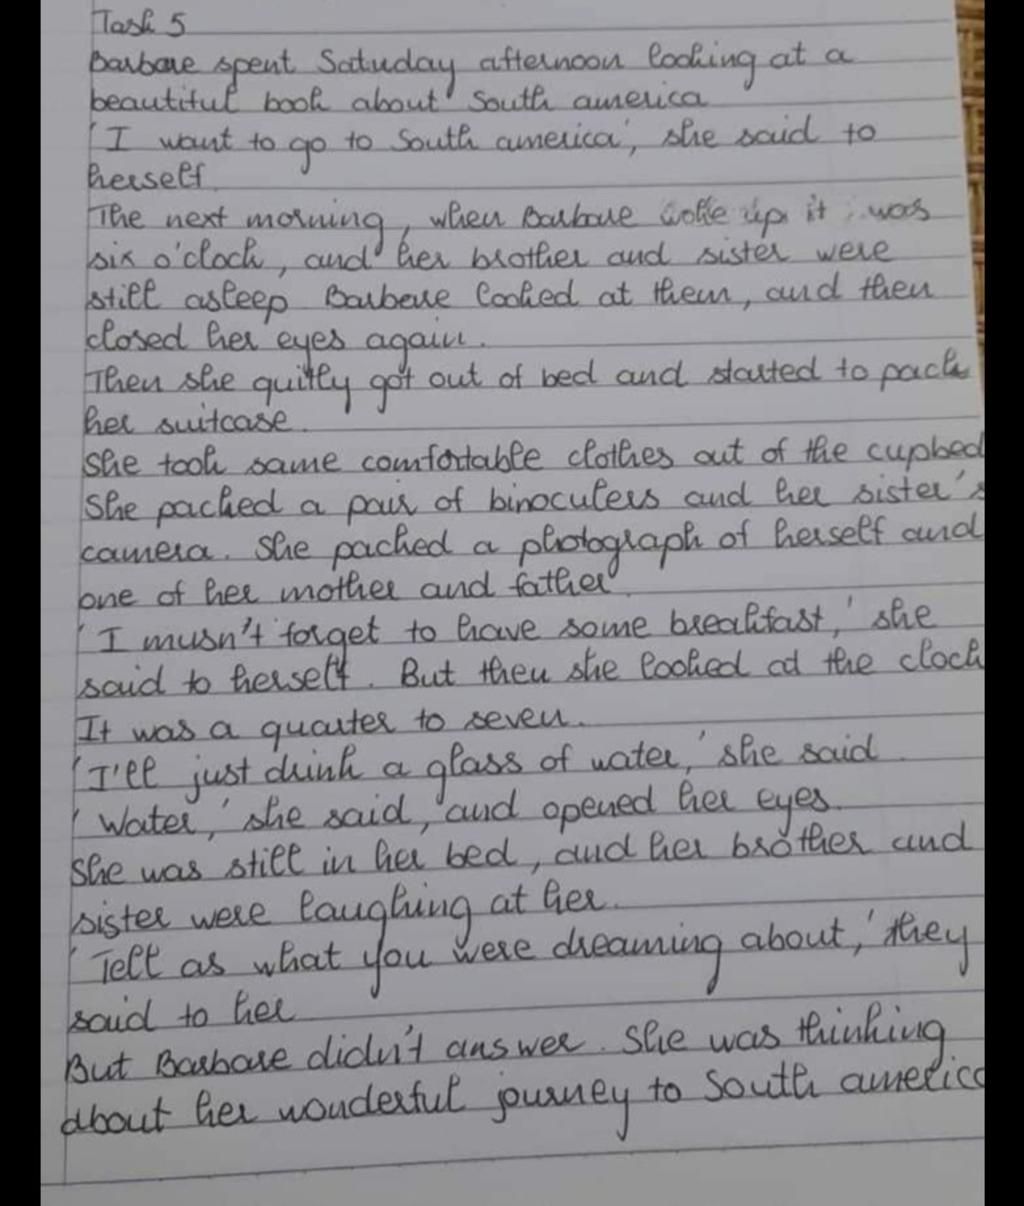 Task 5
Barbare spent Satuday afternoon looking at a
beautiful book about South america
'I want to go to South america', she said to
herself.
The next morning, when Barbare woke up it was
six o'clock, and her brother and sister were
still asleep Barbere looked at them, and then
closed her eyes again.
Then she quitly got out of bed and started to pack
her suitcase.
She took same comfortable clothes out of the cupbed
She packed a pair of binoculers and her sister's
camera. She packed a photograph of herself and
one of her mother and father.
'I musn't forget to have some breakfast,' she
said to herself. But then she looked at the clock
It was a quarter to seven.
'I'll just drink a glass of water,' she said.
'Water,' she said, and opened her eyes.
She was still in her bed, and her brother and
sister were laughing at her.
'Tell as what you were dreaming about,' they
said to her
But Barbare didn't answer. She was thinking
about her wonderful journey to South america